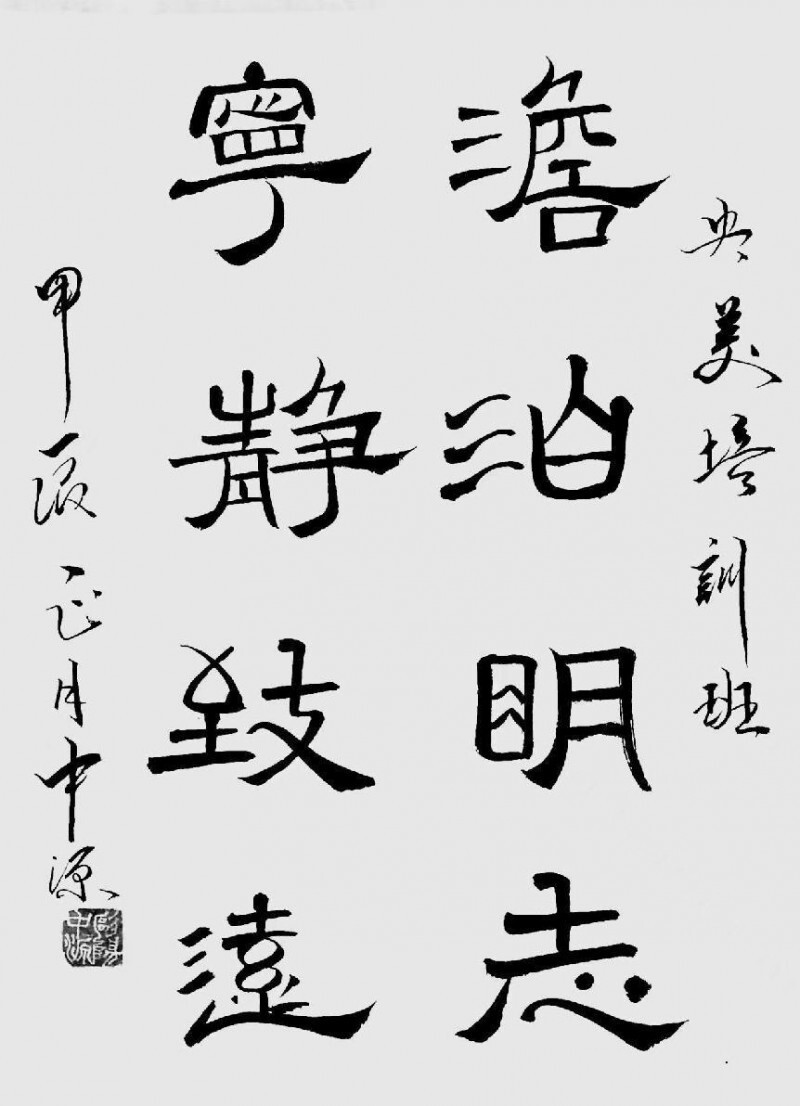 央美培訓班
澹泊明志
寧静致遠
甲辰正月中源